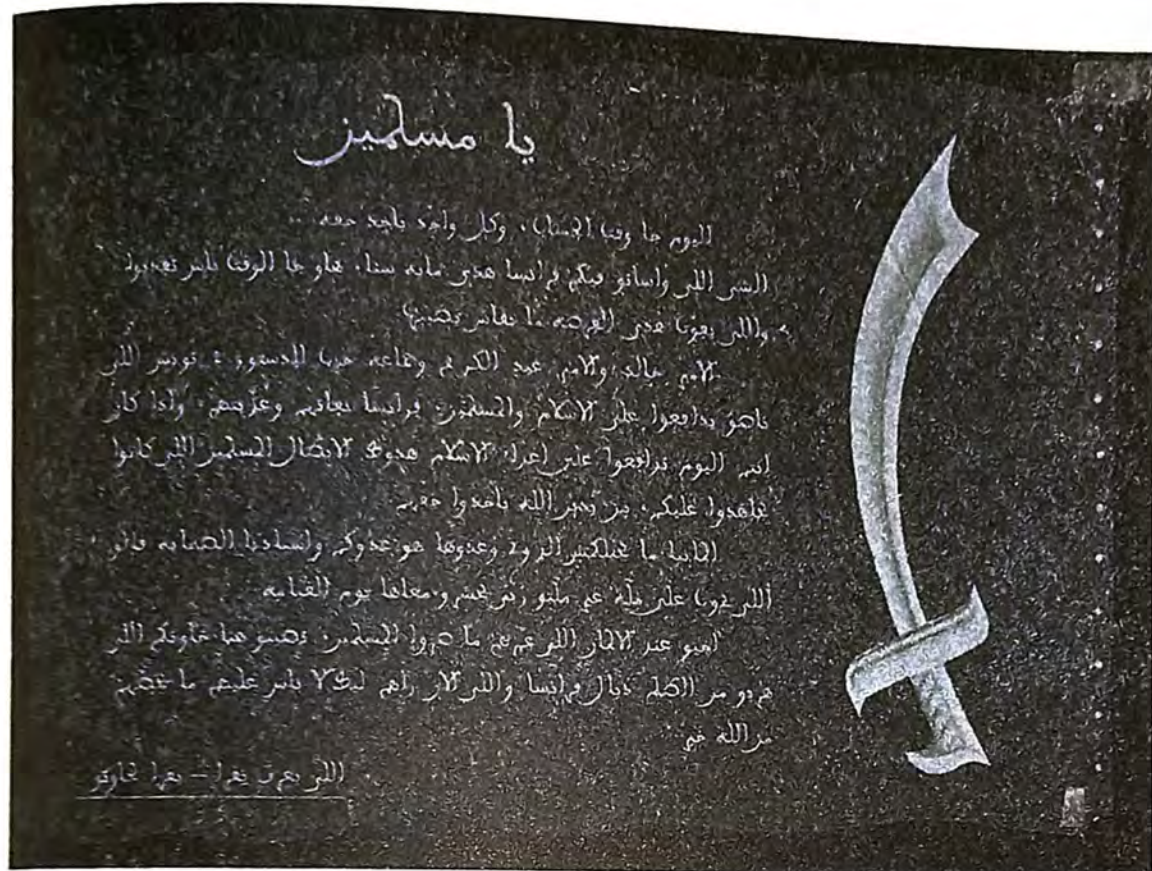 يا مسلمين
اليوم جا وقت الحساب، وكل واحد ياخد حقه..
الشي اللي واساتو فيكم فرانسا هدي مايه سنا، هاو جا الوقت باش
واللي يفوت هدي الفرصه ما بقاش يصيبها
الامير خالد، والامير عبد الكريم وجماعه حزب الدستور في تونس اللي
ناضو يدافعوا على الاسلام والمسلمين، فرانسا نفاتهم وغربتهم، وادا كان
انتم اليوم تدافعوا على اعداء الاسلام هدوك الابطال المسلمين اللي كانوا
يجاهدوا عليكم، بين يدين الله ياخدوا حقهم
المانيا ما الروح وعدوها هو عدوكم واسيادنا الصحابه قالو
اللي يموت على ملة غير ملتو ربي يحشرو معاها يوم القيامه
اجيو عند الالمان اللي عمرهم ما ضروا المسلمين، تصيبو هنا خاوتكم اللي
هربو من الظلم ديال فرانسا واللي الان راهم لاباس عليهم ما يخصهم
من الله غير
اللي يعرف يقرا – يقرا لخاوتو